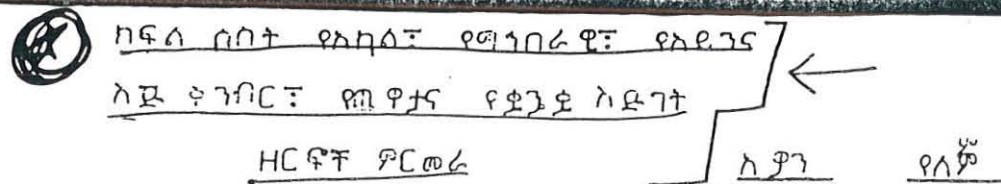 ክፍል ሶስት የአካል፣ የማኅበራዊ፣ የአይንና
እጅ ቅንብር፣ የጨዋታና የቋንቋ እድገት
ዘርፎች ምርመራ አዎን የለም